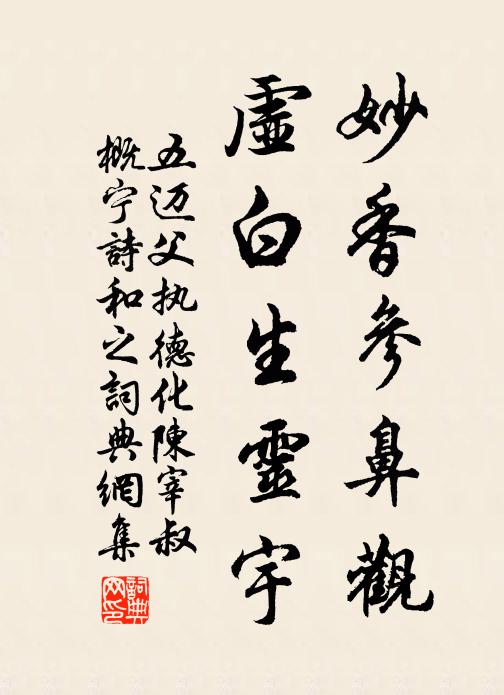 妙香參鼻觀
虛白生靈宇
五迈父执德化陳宰叔
概宁詩和之詞典網集
詞典网印